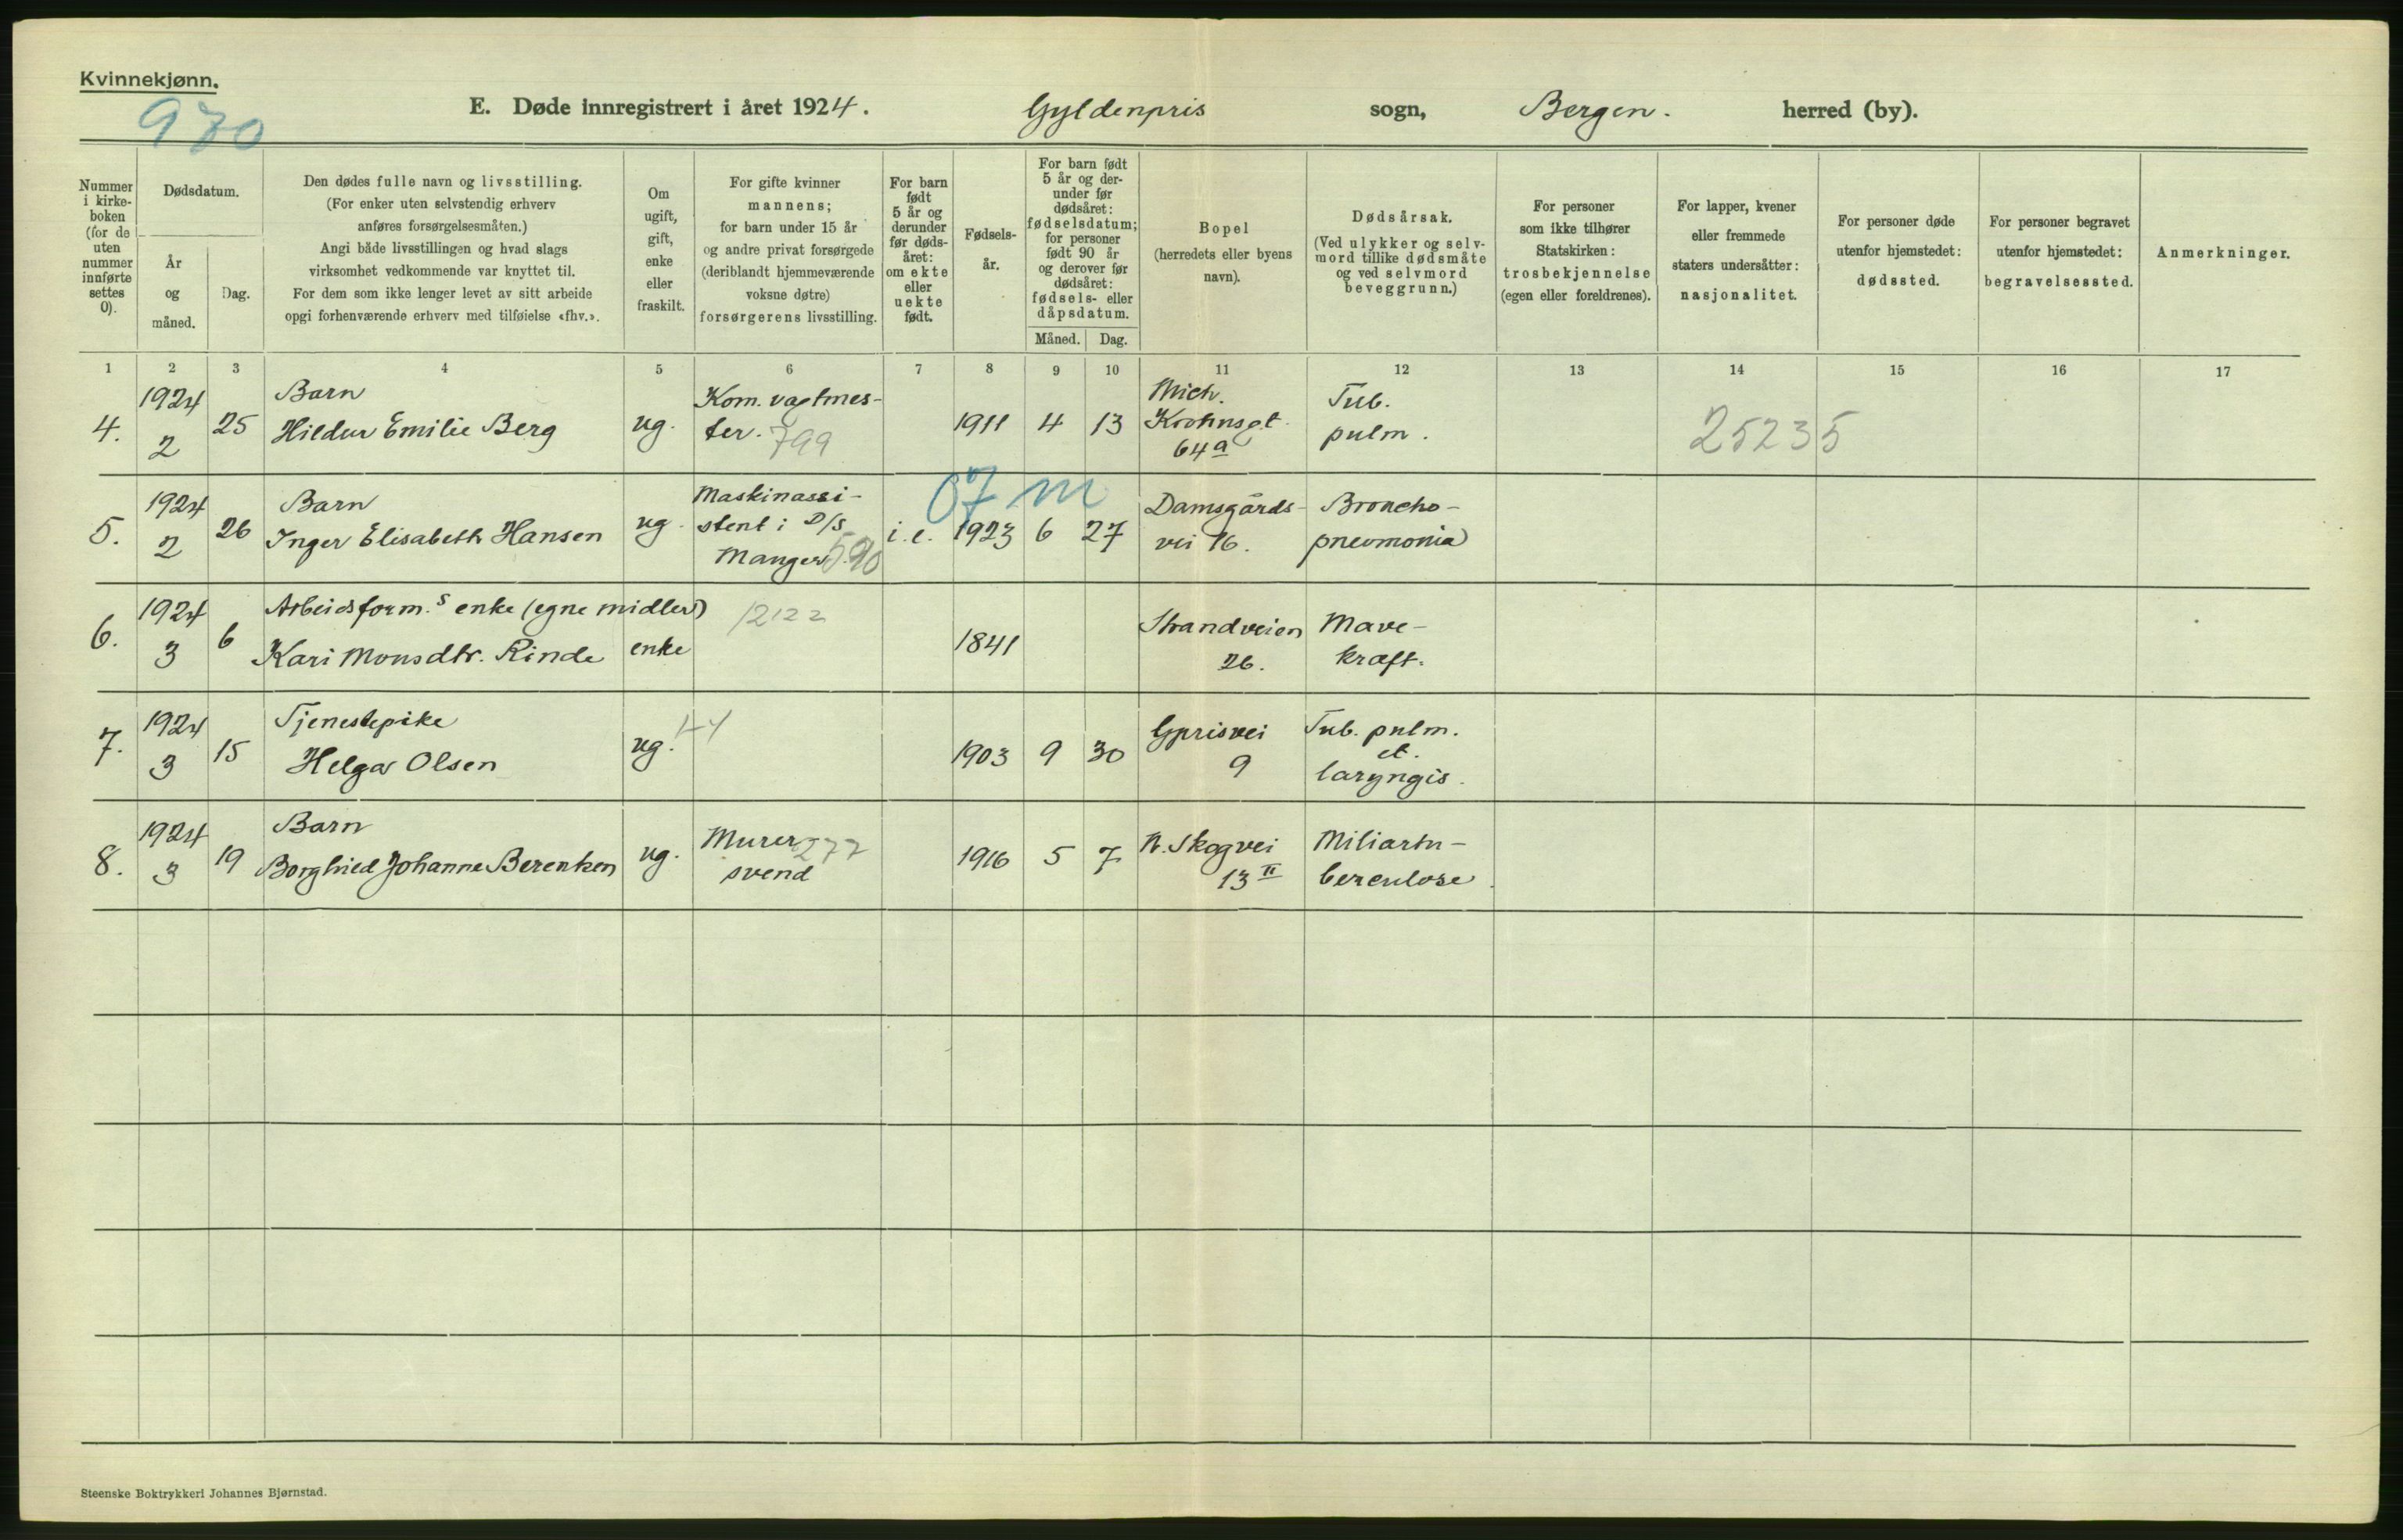 Kvinnekjønn.
970
E. Døde innregistrert i året 1924. Gyldenpris sogn, Bergen. herred (by).
Nummer i kirke-boken (for de uten nummer innførte settes 0).
Dødsdatum.
År og måned.
Dag.
Den dødes fulle navn og livsstilling.
(For enker uten selvstendig erhverv
anføres forsørgelsesmåten.)
Angi både livsstillingen og hvad slags
virksomhet vedkommende var knyttet til.
For dem som ikke lenger levet av sitt arbeide
opgi forhenværende erhverv med tilføielse «fhv.».
Om ugift, gift, enke eller fraskilt.
For gifte kvinner
mannens;
for barn under 15 år
og andre privat forsørgede
(deriblandt hjemmeværende
voksne døtre)
forsørgerens livsstilling.
For barn født 5 år og derunder før døds-året: om ekte eller uekte født.
Fødsels-år.
For barn født 5 år og der-under før dødsåret: fødselsdatum; for personer født 90 år og derover før dødsåret: fødsels- eller dåpsdatum.
Måned. Dag.
Bopel
(herredets eller byens
navn).
Dødsårsak.
(Ved ulykker og selv-
mord tillike dødsmåte
og ved selvmord
beveggrunn.)
For personer
som ikke tilhører
Statskirken:
trosbekjennelse
(egen eller foreldrenes).
For lapper, kvener
eller fremmede
staters undersåtter:
nasjonalitet.
For personer døde
utenfor hjemstedet:
dødssted.
For personer begravet
utenfor hjemstedet:
begravelsessted.
Anmerkninger.
1 2 3 4 5 6 7 8 9 10 11 12 13 14 15 16 17
4. 1924 2 25 Barn Hildur Emilie Berg ug. Kom. vagtmes-ter. 799 1911 4 13 Mich. Krohnsgt. 64a Tub. pulm. 25235
07 m
5. 1924 2 26 Barn Inger Elisabeth Hansen ug. Maskinassi-stent i D/S Manger 590 i.e. 1923 6 27 Damsgårds-vei 16. Broncho-pneumonia
6. 1924 3 6 Arbeidsform.s enke (egne midler) Kari Monsdtr. Rinde enke 12122 1841 Strandveien 26. Mave-kræft.
7. 1924 3 15 Tjenestepike Helga Olsen ug. 1903 9 30 Gprisvei 9 Tub. pulm. et. laryngis.
8. 1924 3 19 Barn Borghied Johanne Berentsen ug. Murer svend 277 1916 5 7 N. Skogvei 13 II Miliartu-berculose.
Steenske Boktrykkeri Johannes Bjørnstad.